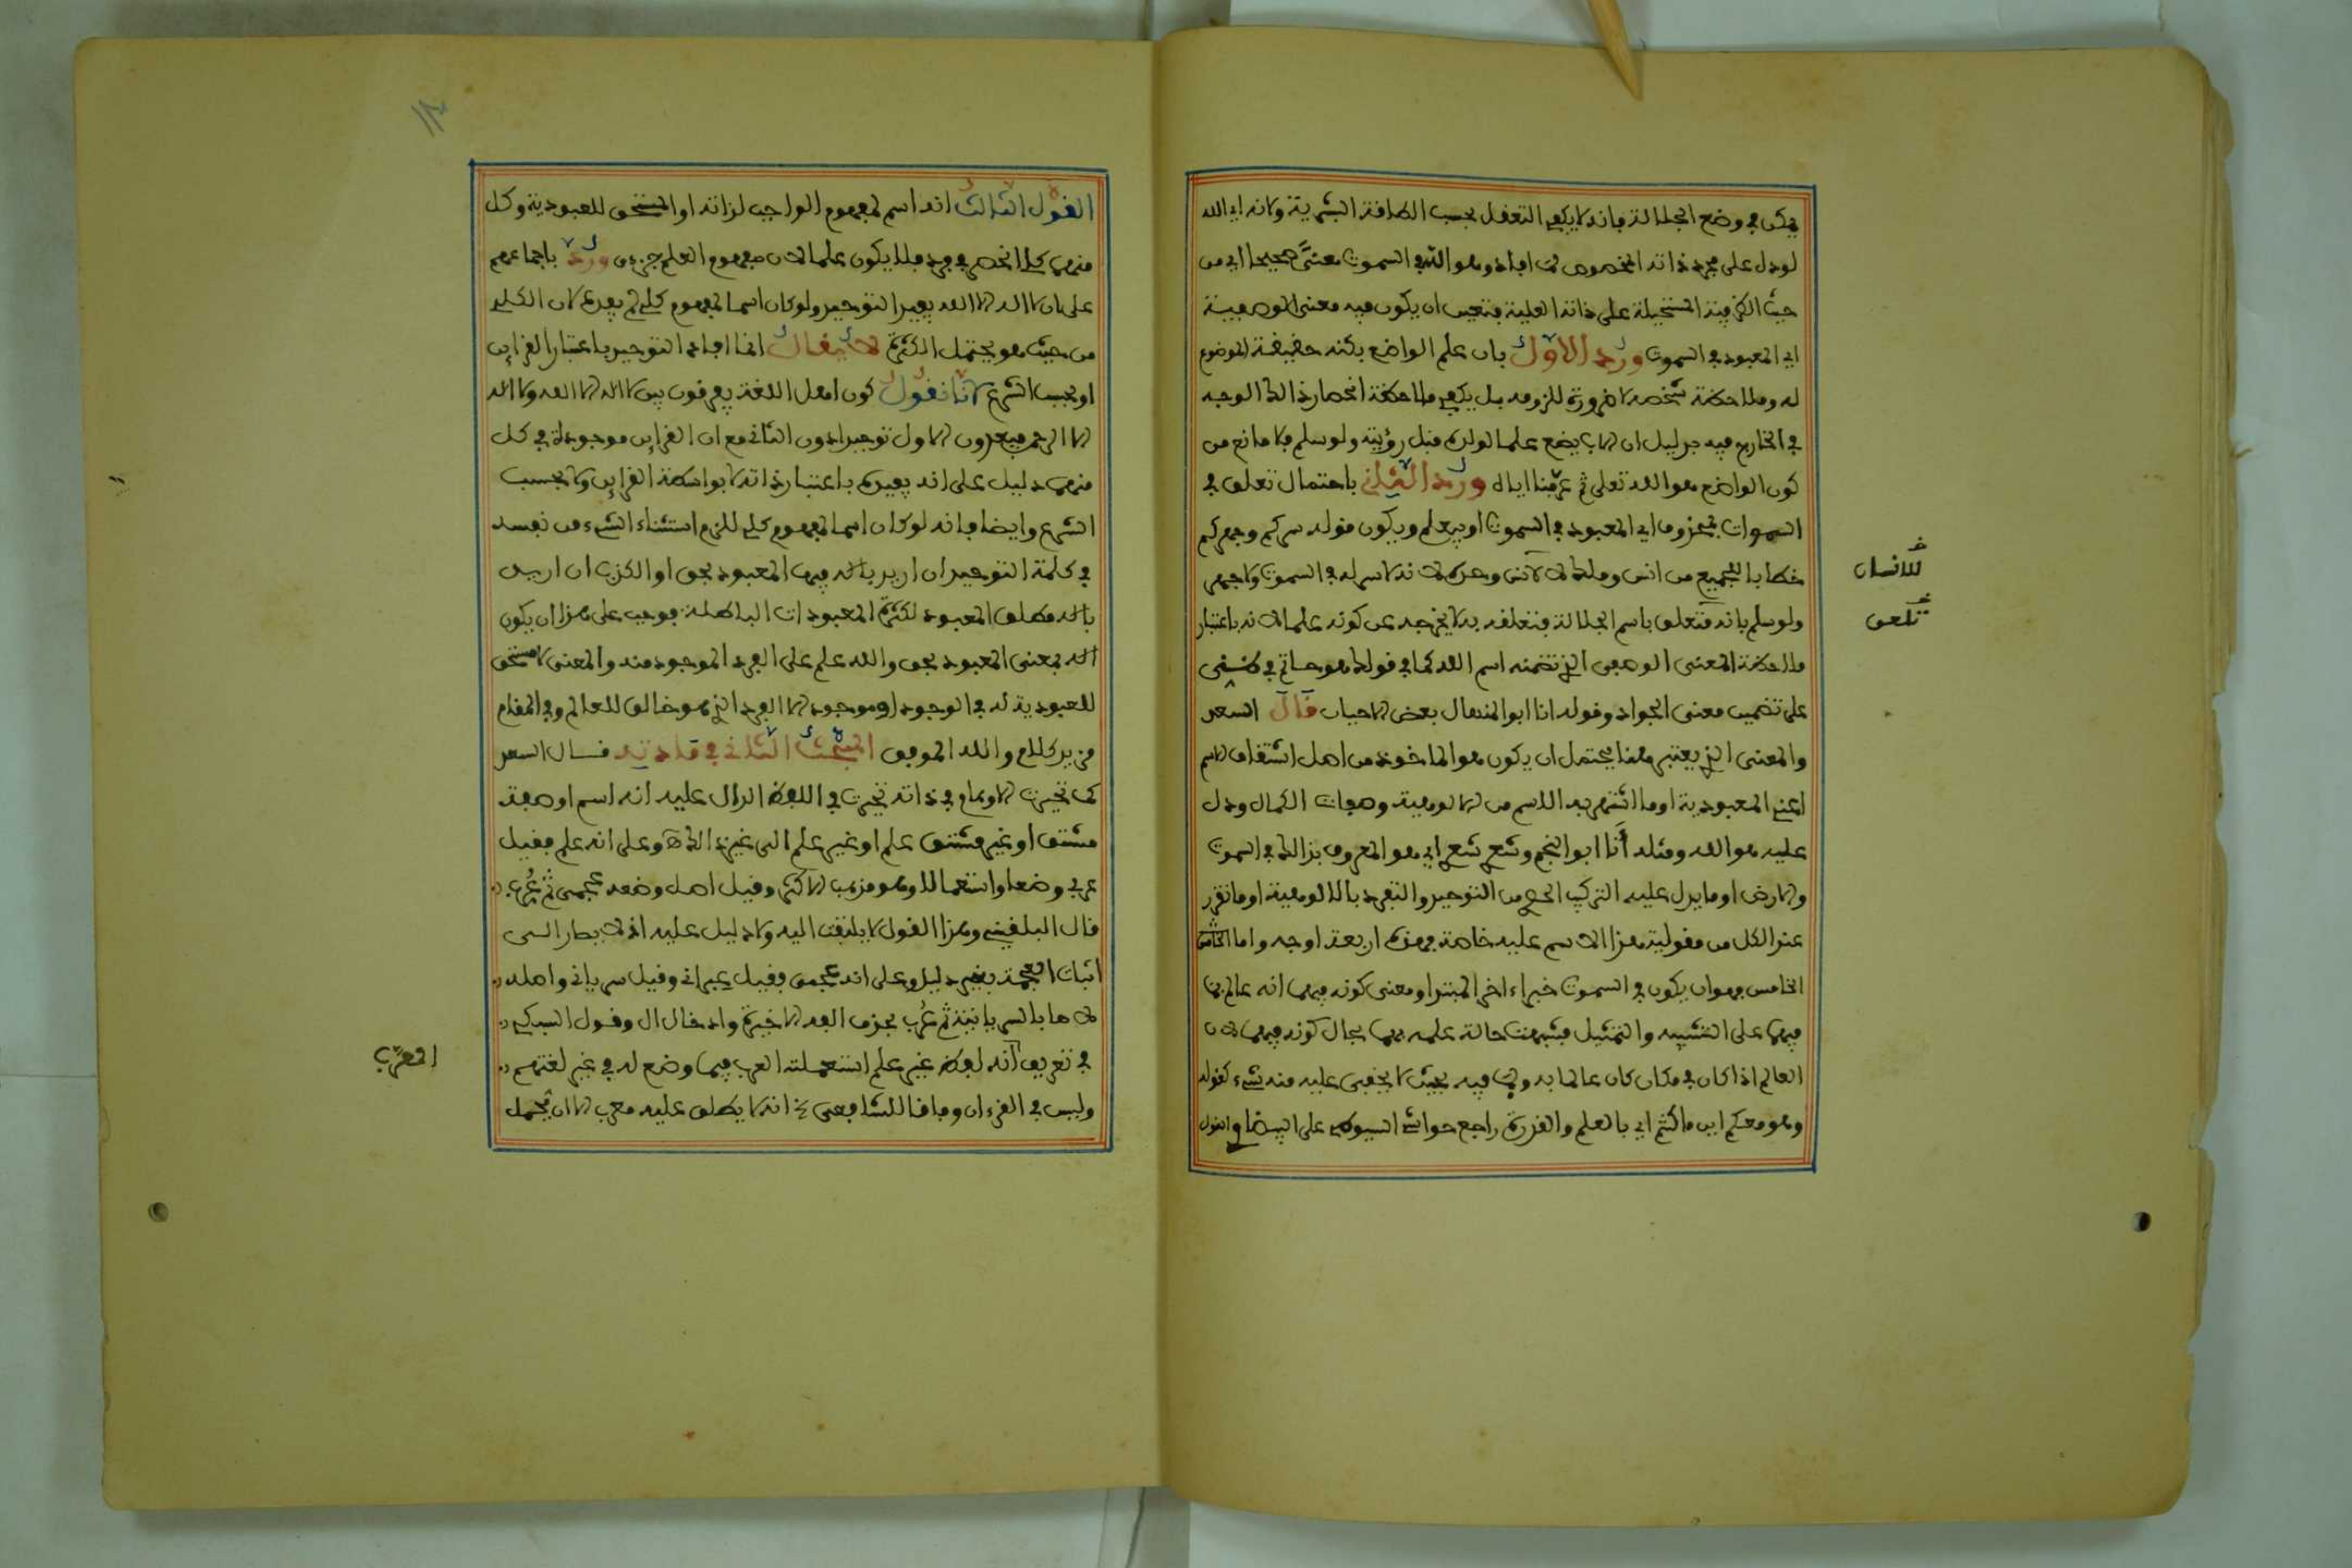 يمكن في وضع الجلالة بانه لا يكفي التعقل بحسب الطاقة البشرية ولانه اي الله
لو دل على مجرد ذاته المخصوص لما افاد وهو الله في السموت معنًى صحيحا اي من
حيث الظرفية المستحيلة على ذاته العلية فتعين ان يكون فيه معنى الوصفية
اي المعبود في السموت ورد الاول بان علم الواضع بكنه حقيقة الموضوع
له وملاحظة شخصه لا ضرورة للزومه بل يكفي ملاحظة انحصار ذلك الوجه
في الخارج فيه بدليل ان الاب يضع علما لولده قبل رؤيته ولو سلم فلا مانع من
كون الواضع هو الله تعلى ثم عرفنا اياه ورد الثاني باحتمال تعلق في
السموات بمحذوف اي المعبود في السموت او بيعلم ويكون قوله سركم وجهركم
خطابا للجميع من انس وملك لا لانس وحده لانه لا سر له في السموت ولا جهر
ولو سلم بانه متعلق باسم الجلالة فتعلقه به لا يخرجه عن كونه علما لانه باعتبار
ملاحظة المعنى الوصفي الذي تضمنه اسم الله كما في قولك هو حاتم في طيئ
على تضمين معنى الجواد وقوله انا ابو المنهال بعض الاحيان قال السعد
والمعنى الذي يعتبر هنا يحتمل ان يكون هو الماخوذ من اصل اشتقاق الاسم
اعني المعبودية او ما اشتهر به الاسم من الالوهية وصفات الكمال ودل
عليه هو الله ومثله أنا ابو النجم وشعري شعري اي هو المعروف بذلك في السموت
والارض او ما يدل عليه التركيب الحصري من التوحيد والتفرد بالالوهية او ما تقرر
عند الكل من مقولية هذا الاسم عليه خاصة فهذه اربعة اوجه واما
الخامس فهو ان يكون في السموت خبرا اخر للمبتدا ومعنى كونه فيهما انه عالم بما
فيهما على التشبيه والتمثيل فشبهت حالة علمه بهما بحال كونه فيهما لان
العالم اذا كان في مكان كان عالما به وبما فيه بحيث لا يخفى عليه منه شيء كقوله
وهو معكم اين ما كنتم اي بالعلم والقدرة راجع حواشي السيوطي على البيضاوي القول
للانسان
تعلق
القول الثالث انه اسم لمفهوم الواجب لذاته او المستحق للعبودية وكل
منهما كلي انحصر في فرد فلا يكون علما لان مفهوم العلم جزئي ورد باجماعهم
على ان لا اله الا الله يفيد التوحيد ولو كان اسما لمفهوم كلي لم يفده لان الكلي
من حيث هو يحتمل الكثرة لا يقال انما افاد التوحيد باعتبار القراين
او بحسب الشرع لانا نقول كون اهل اللغة يفرقون بين لا اله الا الله ولا اله
الا الرحمن فيعدون الاول توحيدا دون الثاني مع ان القراين موجودة في كل
منهما دليل على انه يفيده باعتبار ذاته لا بواسطة القراين ولا بحسب
الشرع وايضا فانه لو كان اسما لمفهوم كلي للزم استثناء الشيء من نفسه
في كلمة التوحيد ان اريد بالاله فيها المعبود بحق او الكذب ان اريد
بالاله مطلق المعبود لكثرة المعبودات الباطلة فوجب على هذا ان يكون
اله بمعنى المعبود بحق والله علم على الفرد الموجود منه والمعنى لا مستحق
للعبودية له في الوجود او موجود الا الفرد الذي هو خالق للعالم وفي المقام
مزيد كلام والله الموفق المبحث الثاني في مادته قال السعد
كما تحيرت الاوهام في ذاته تحيرت في اللفظ الدال عليه انه اسم او صفة
مشتق او غير مشتق علم او غير علم الى غير ذلك وعلى انه علم فقيل
عربي وضعا واستعمالا وهو مذهب الاكثر وقيل اصل وضعه عجمي ثم عُرب
قال البلقيني وهذا القول لا يلتفت اليه ولا دليل عليه اذ لا يصار الى
اثبات العجمة بغير دليل وعلى انه عجمي فقيل عبراني وقيل سرياني واصله
لاها بالسريانية ثم عُرب بحذف الفه الاخيرة وادخال ال وقول السبكي
في تعريف انه لفظ غير علم استعملته العرب فيما وضع له في غير لغتهم
وليس في القرءان وفاقا للشافعي لانه لا يطلق عليه معرب الا ان يحمل
المعرّب